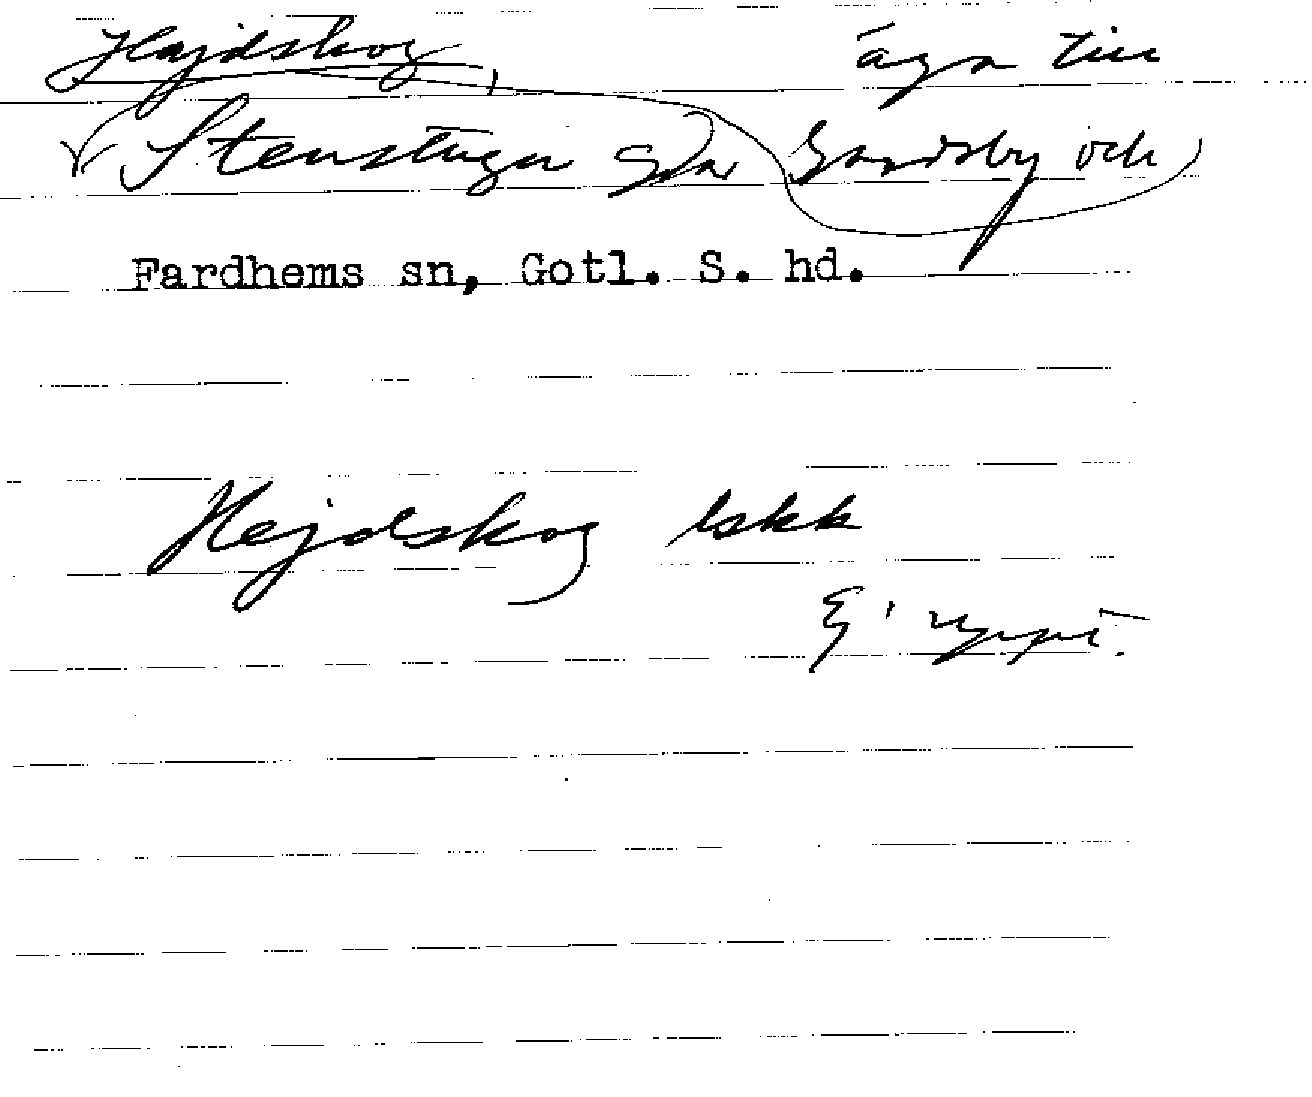 Hajdskog, äga till
Stenstugu gda Gardsby och
Fardhems sn, Gotl. S. hd.
Hejdskog lskk
Ej uppt.